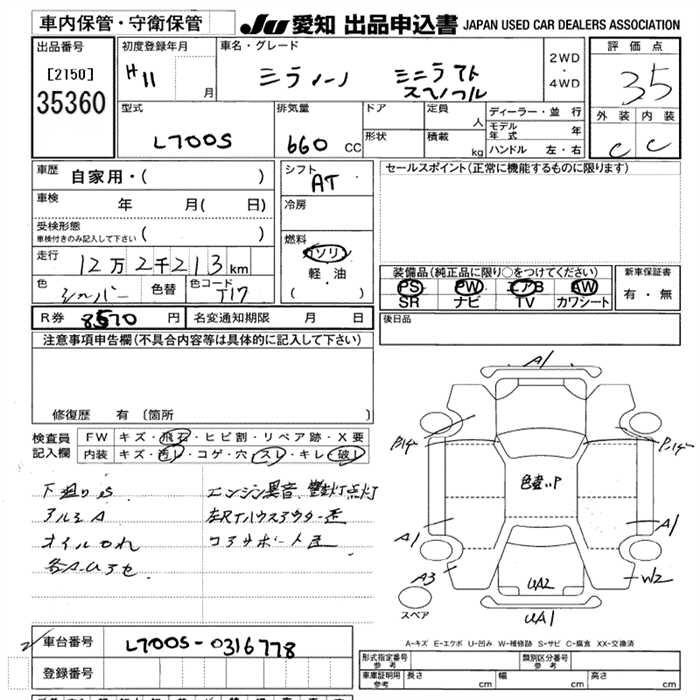 車内保管・守衛保管
JU 愛知 出品申込書 JAPAN USED CAR DEALERS ASSOCIATION
出品番号
[2150]
35360
初度登録年月
H11 月
車名・グレード
ミラジーノ ミニライト
2WD
・
4WD
評価点
3.5
外装 内装
C C
型式
L700S
排気量
660 CC
ドア
形状
定員
人
積載
kg
ディーラー・並行
モデル年式 年
ハンドル 左・右
車歴
自家用・( )
車検
年 月( 日)
受検形態
車検付きのみ記入して下さい ( )
走行
12万2千213km
色
シルバー
色替
色コード
T17
シフト
AT
冷房
燃料
ガソリン
軽油
( )
セールスポイント(正常に機能するものに限ります)
装備品(純正品に限り○をつけてください)
PS PW エアB AW
SR ナビ TV カワシート
新車保証書
有・無
R券 8570 円
名変通知期限 月 日
後日品
注意事項申告欄(不具合内容等は具体的に記入して下さい)
修復歴 有 (箇所
検査員
記入欄
FW キズ・飛石・ヒビ割・リペア跡・X要
内装 キズ・汚レ・コゲ・穴・スレ・キレ・破レ
下廻りS
アルミA
オイルもれ
各A.Uヨセ
エンジン異音、警告灯点灯
左RTハウスアウター歪
コアサポート歪
A1
A1
A1
A3
W2
色違いP
UA2
UA1
スペア
A-キズ E-エクボ U-凹み W-補修跡 S-サビ C-腐食 XX-交換済
車台番号
L700S-0316778
登録番号
形式指定番号
参考
類別区分番号
参考
車庫証明用
参考
長さ cm
幅 cm
高さ cm